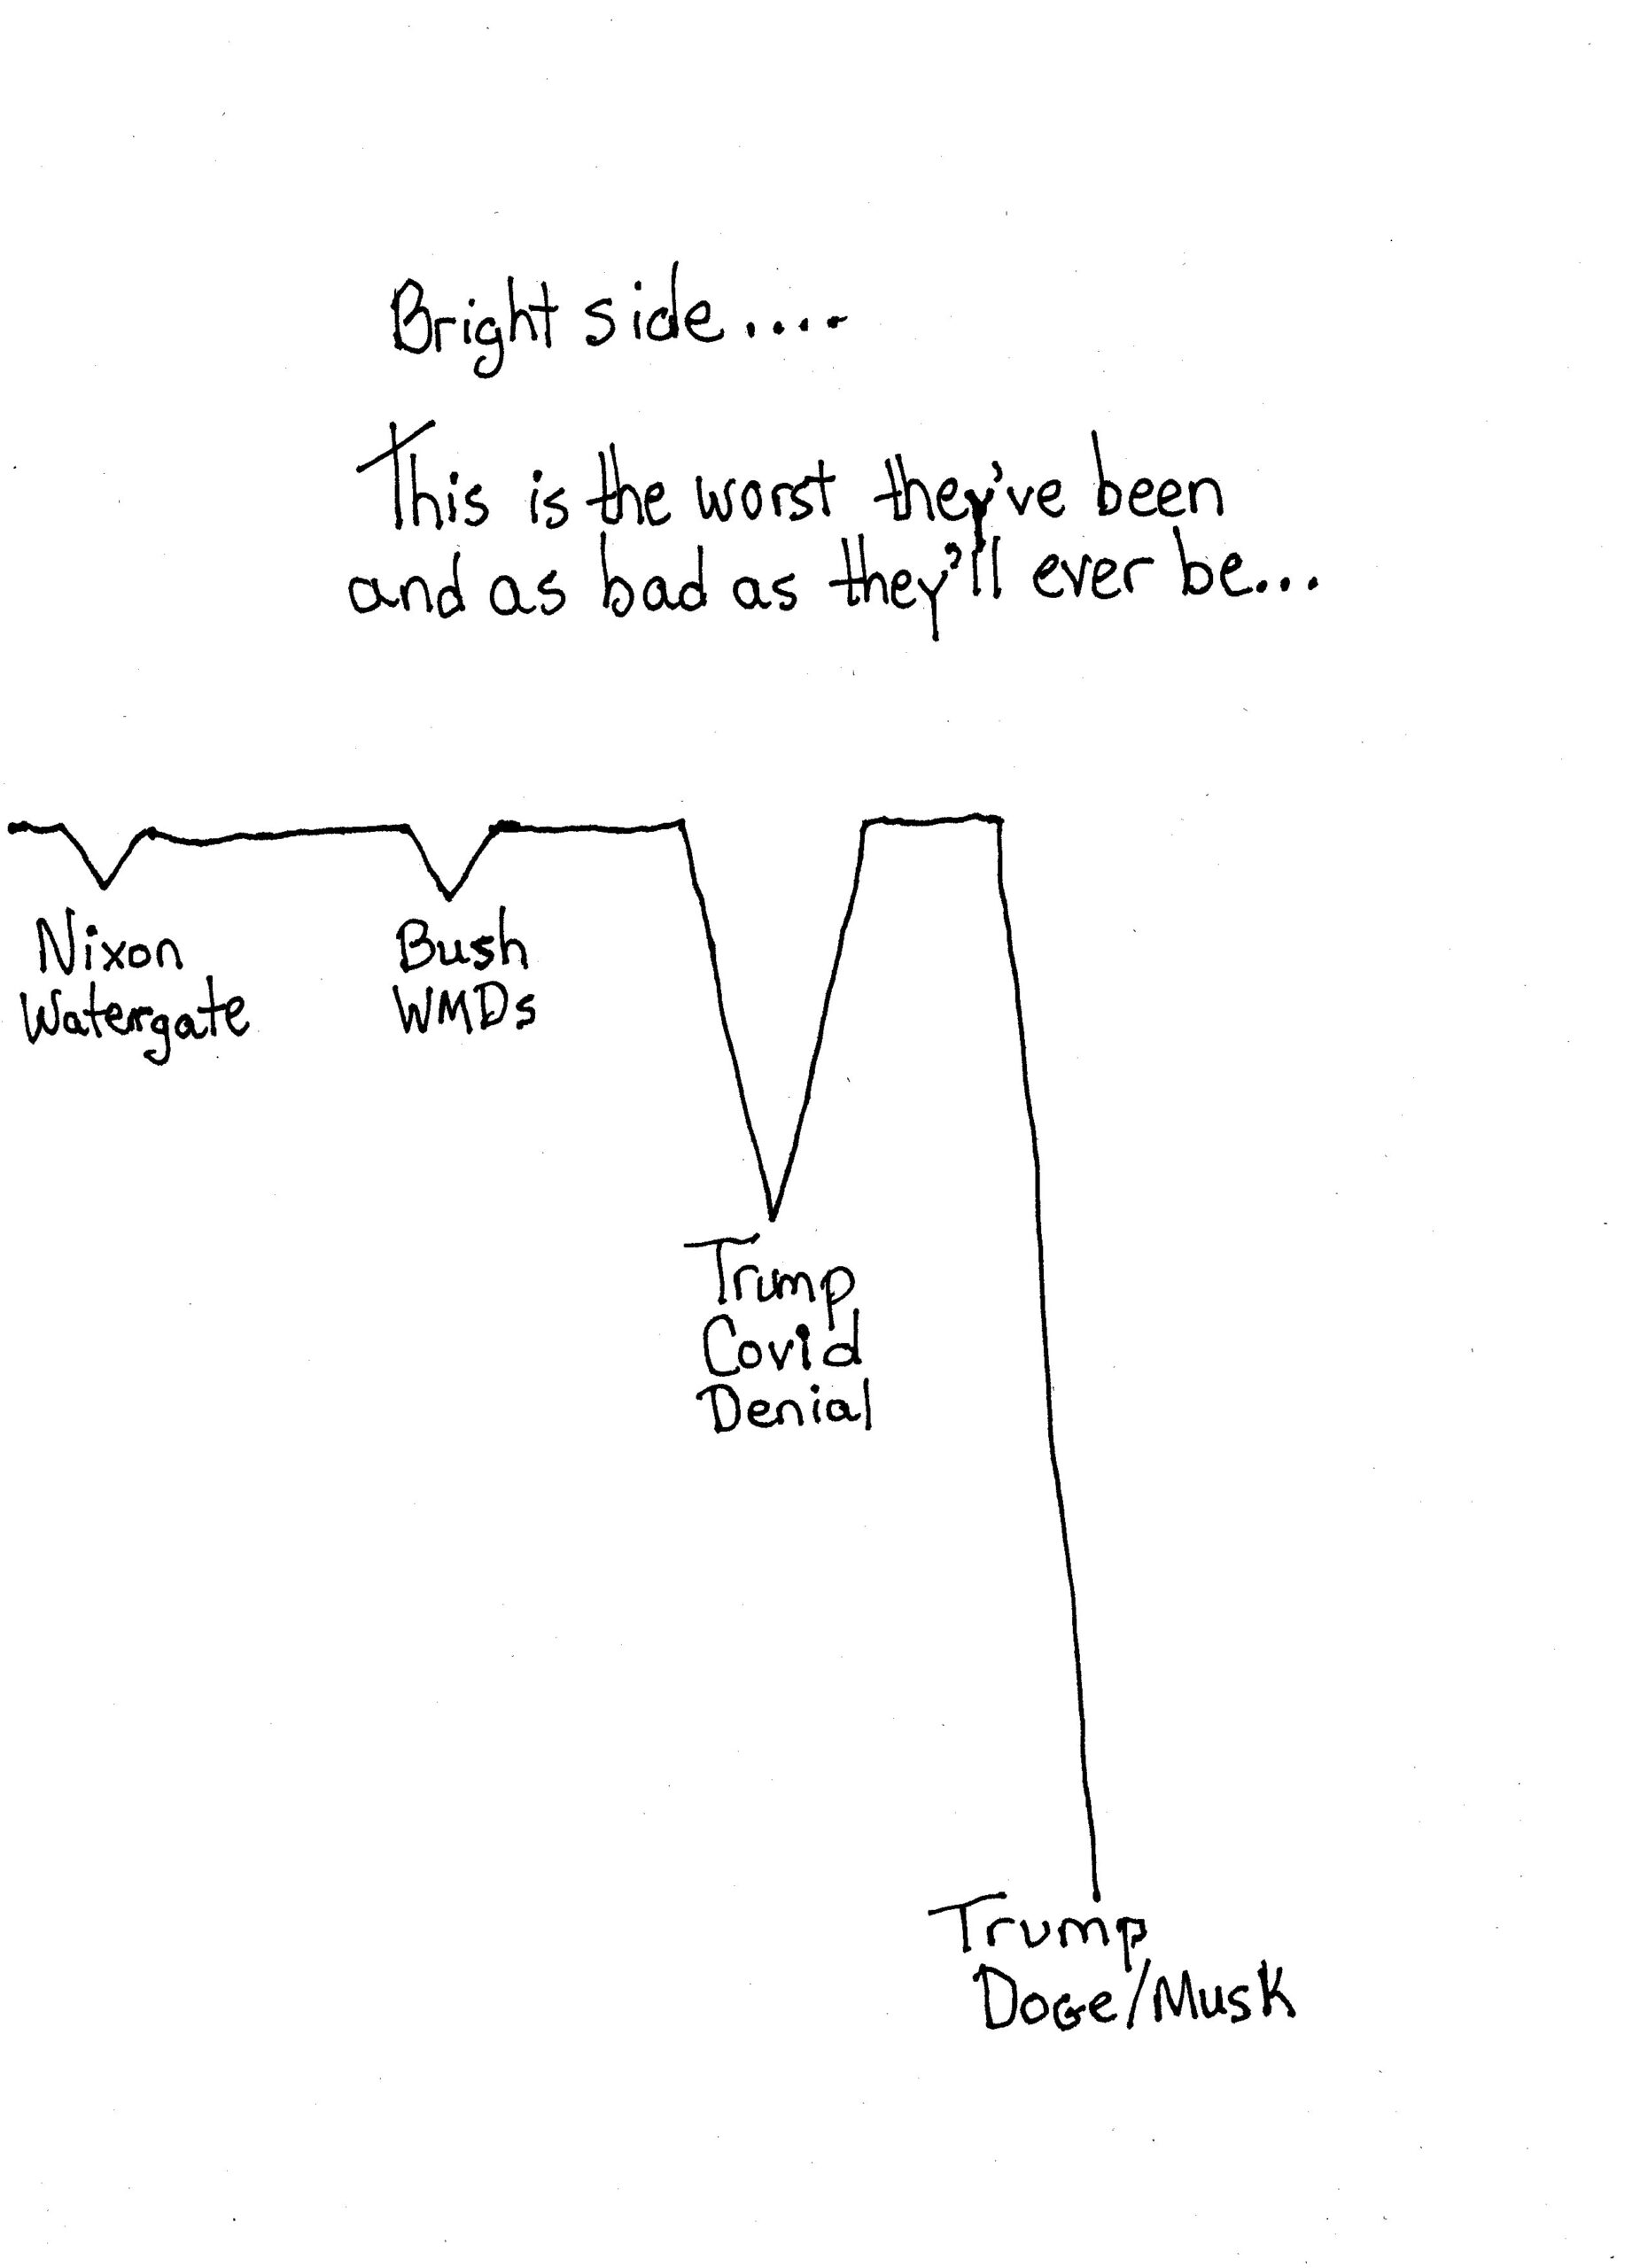 Bright side....
This is the worst they've been
and as bad as they'll ever be...
Nixon
Watergate
Bush
WMDs
Trump
Covid
Denial
Trump
DoGe/Musk